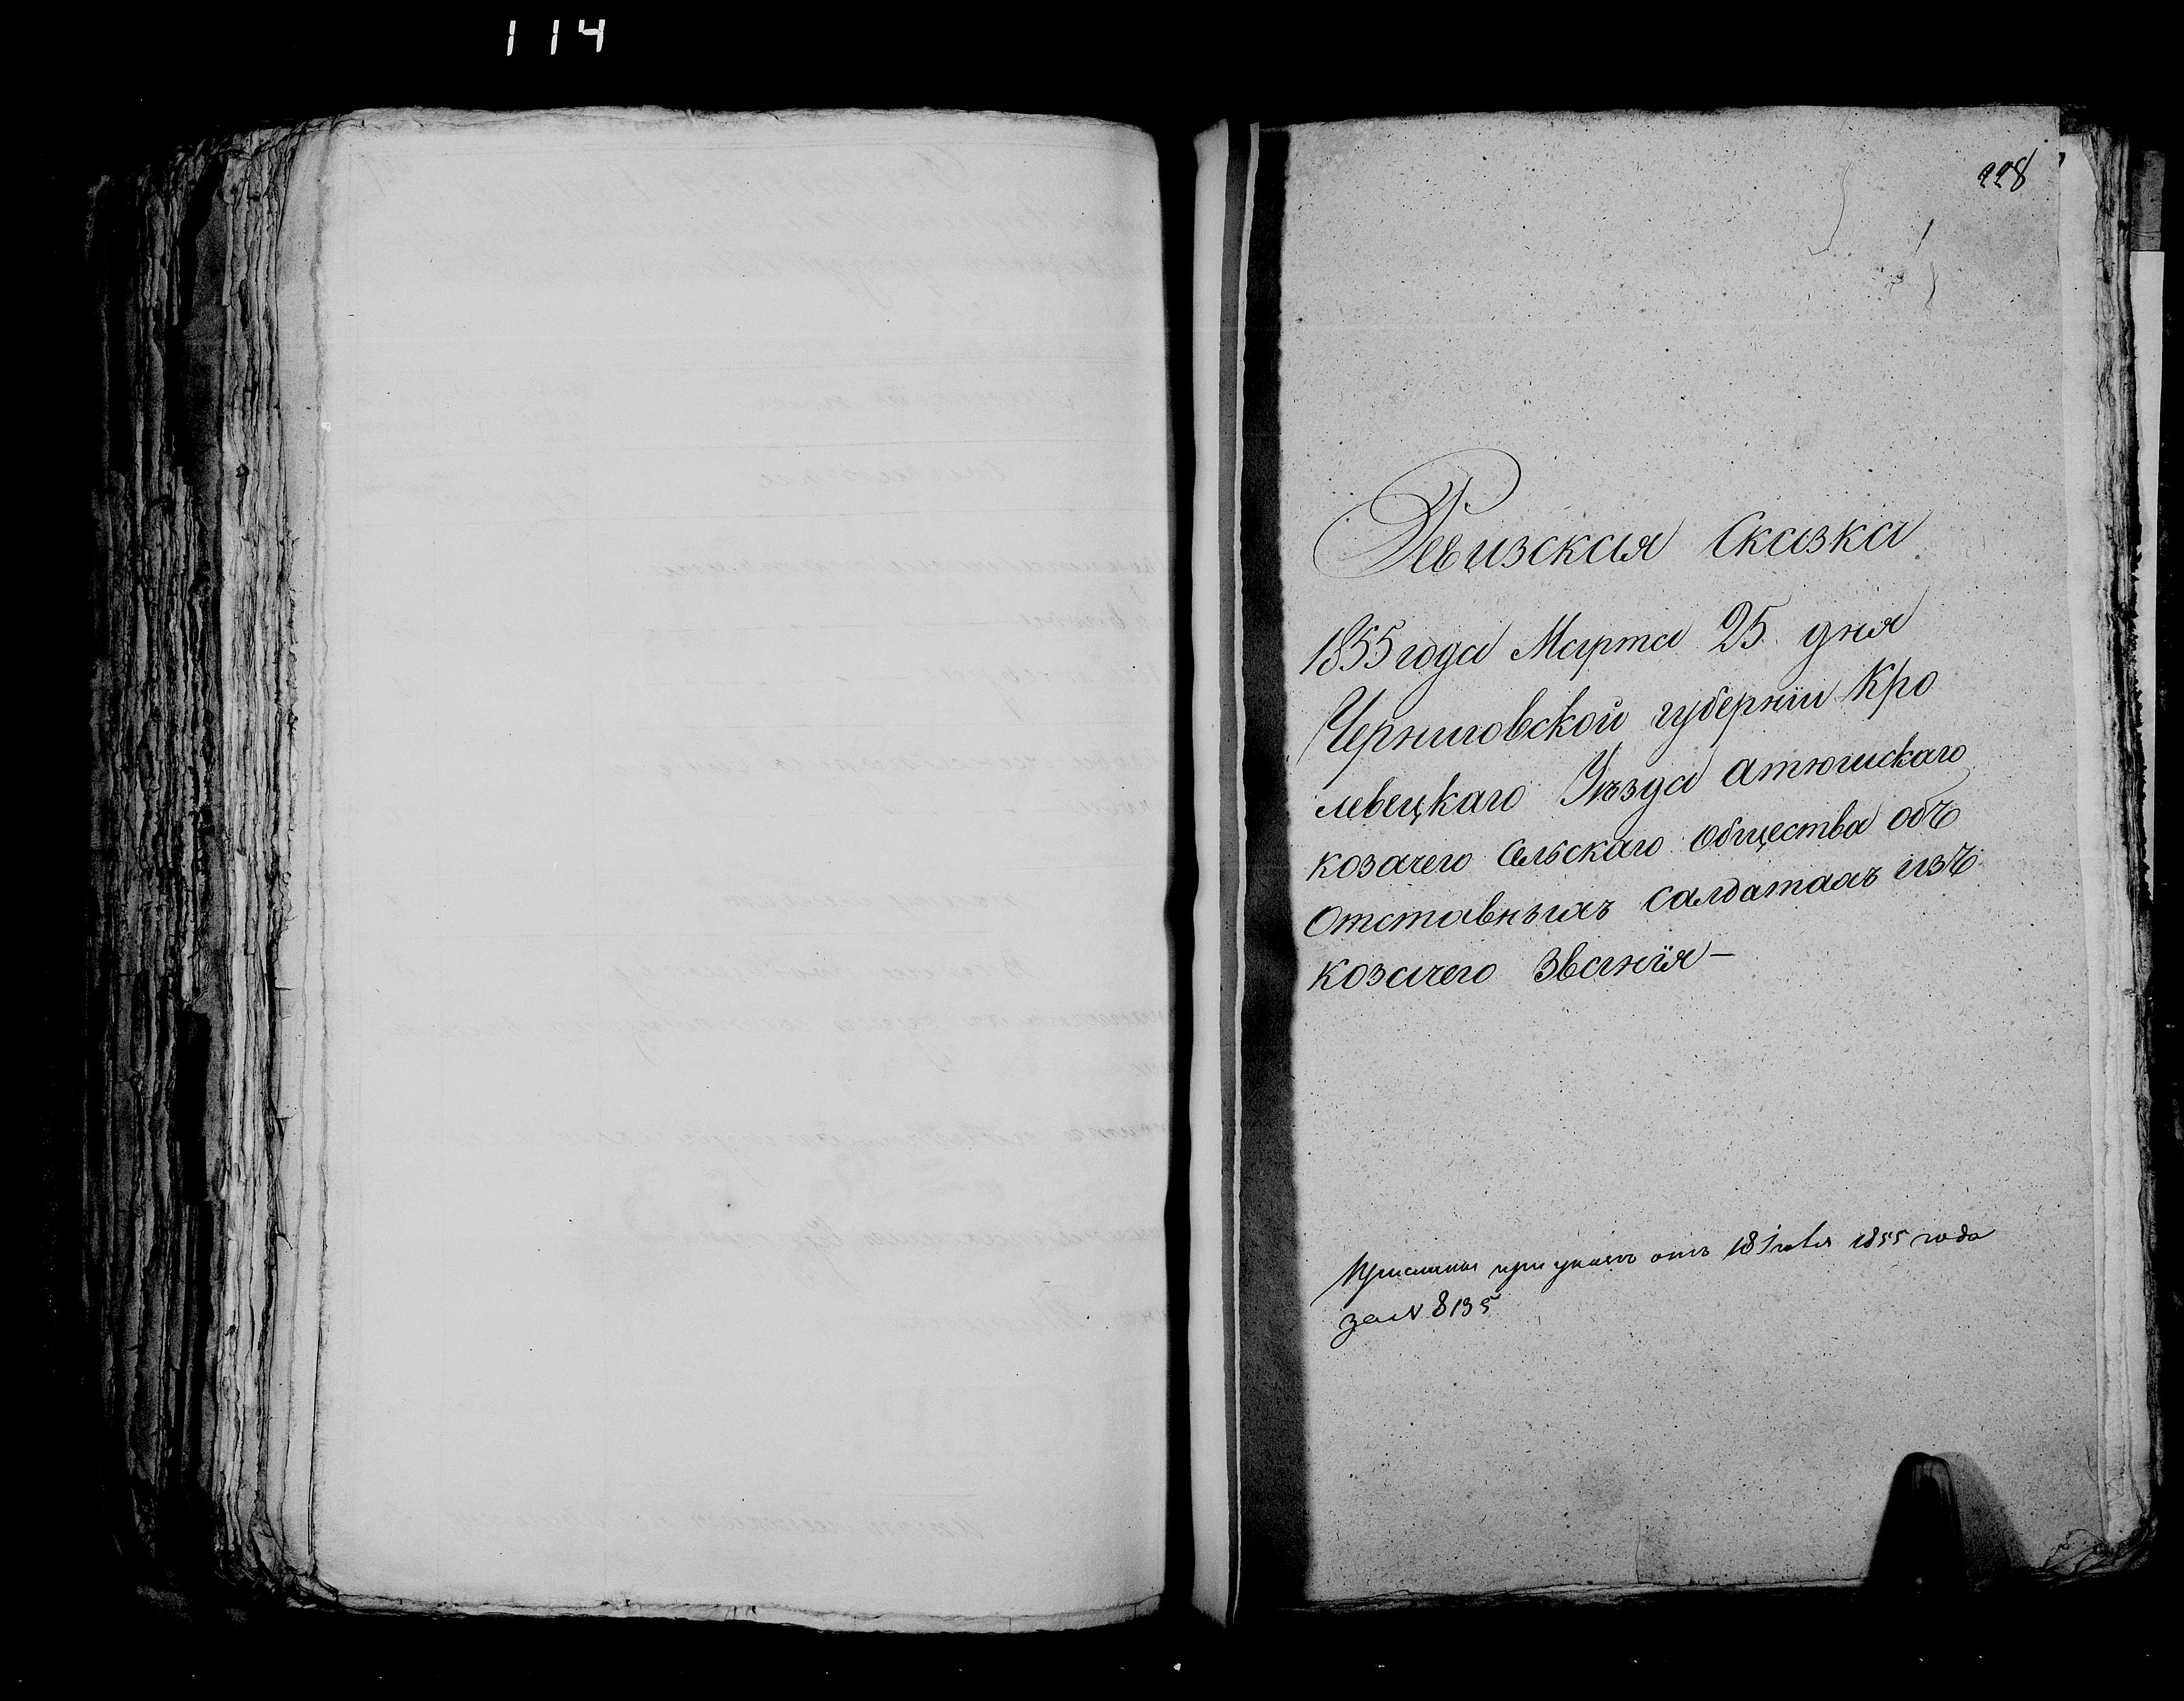 114
228
Ревизская Сказка
1855 года Марта 25 дня
Черниговской губернiи Кро
левецкаго Уѣзда атюшскаго
козачего Сельскаго Общества объ
Отставныхъ Салдатахъ изъ
козачего Званiя —
при отъ 18 1855 года
за N 8135